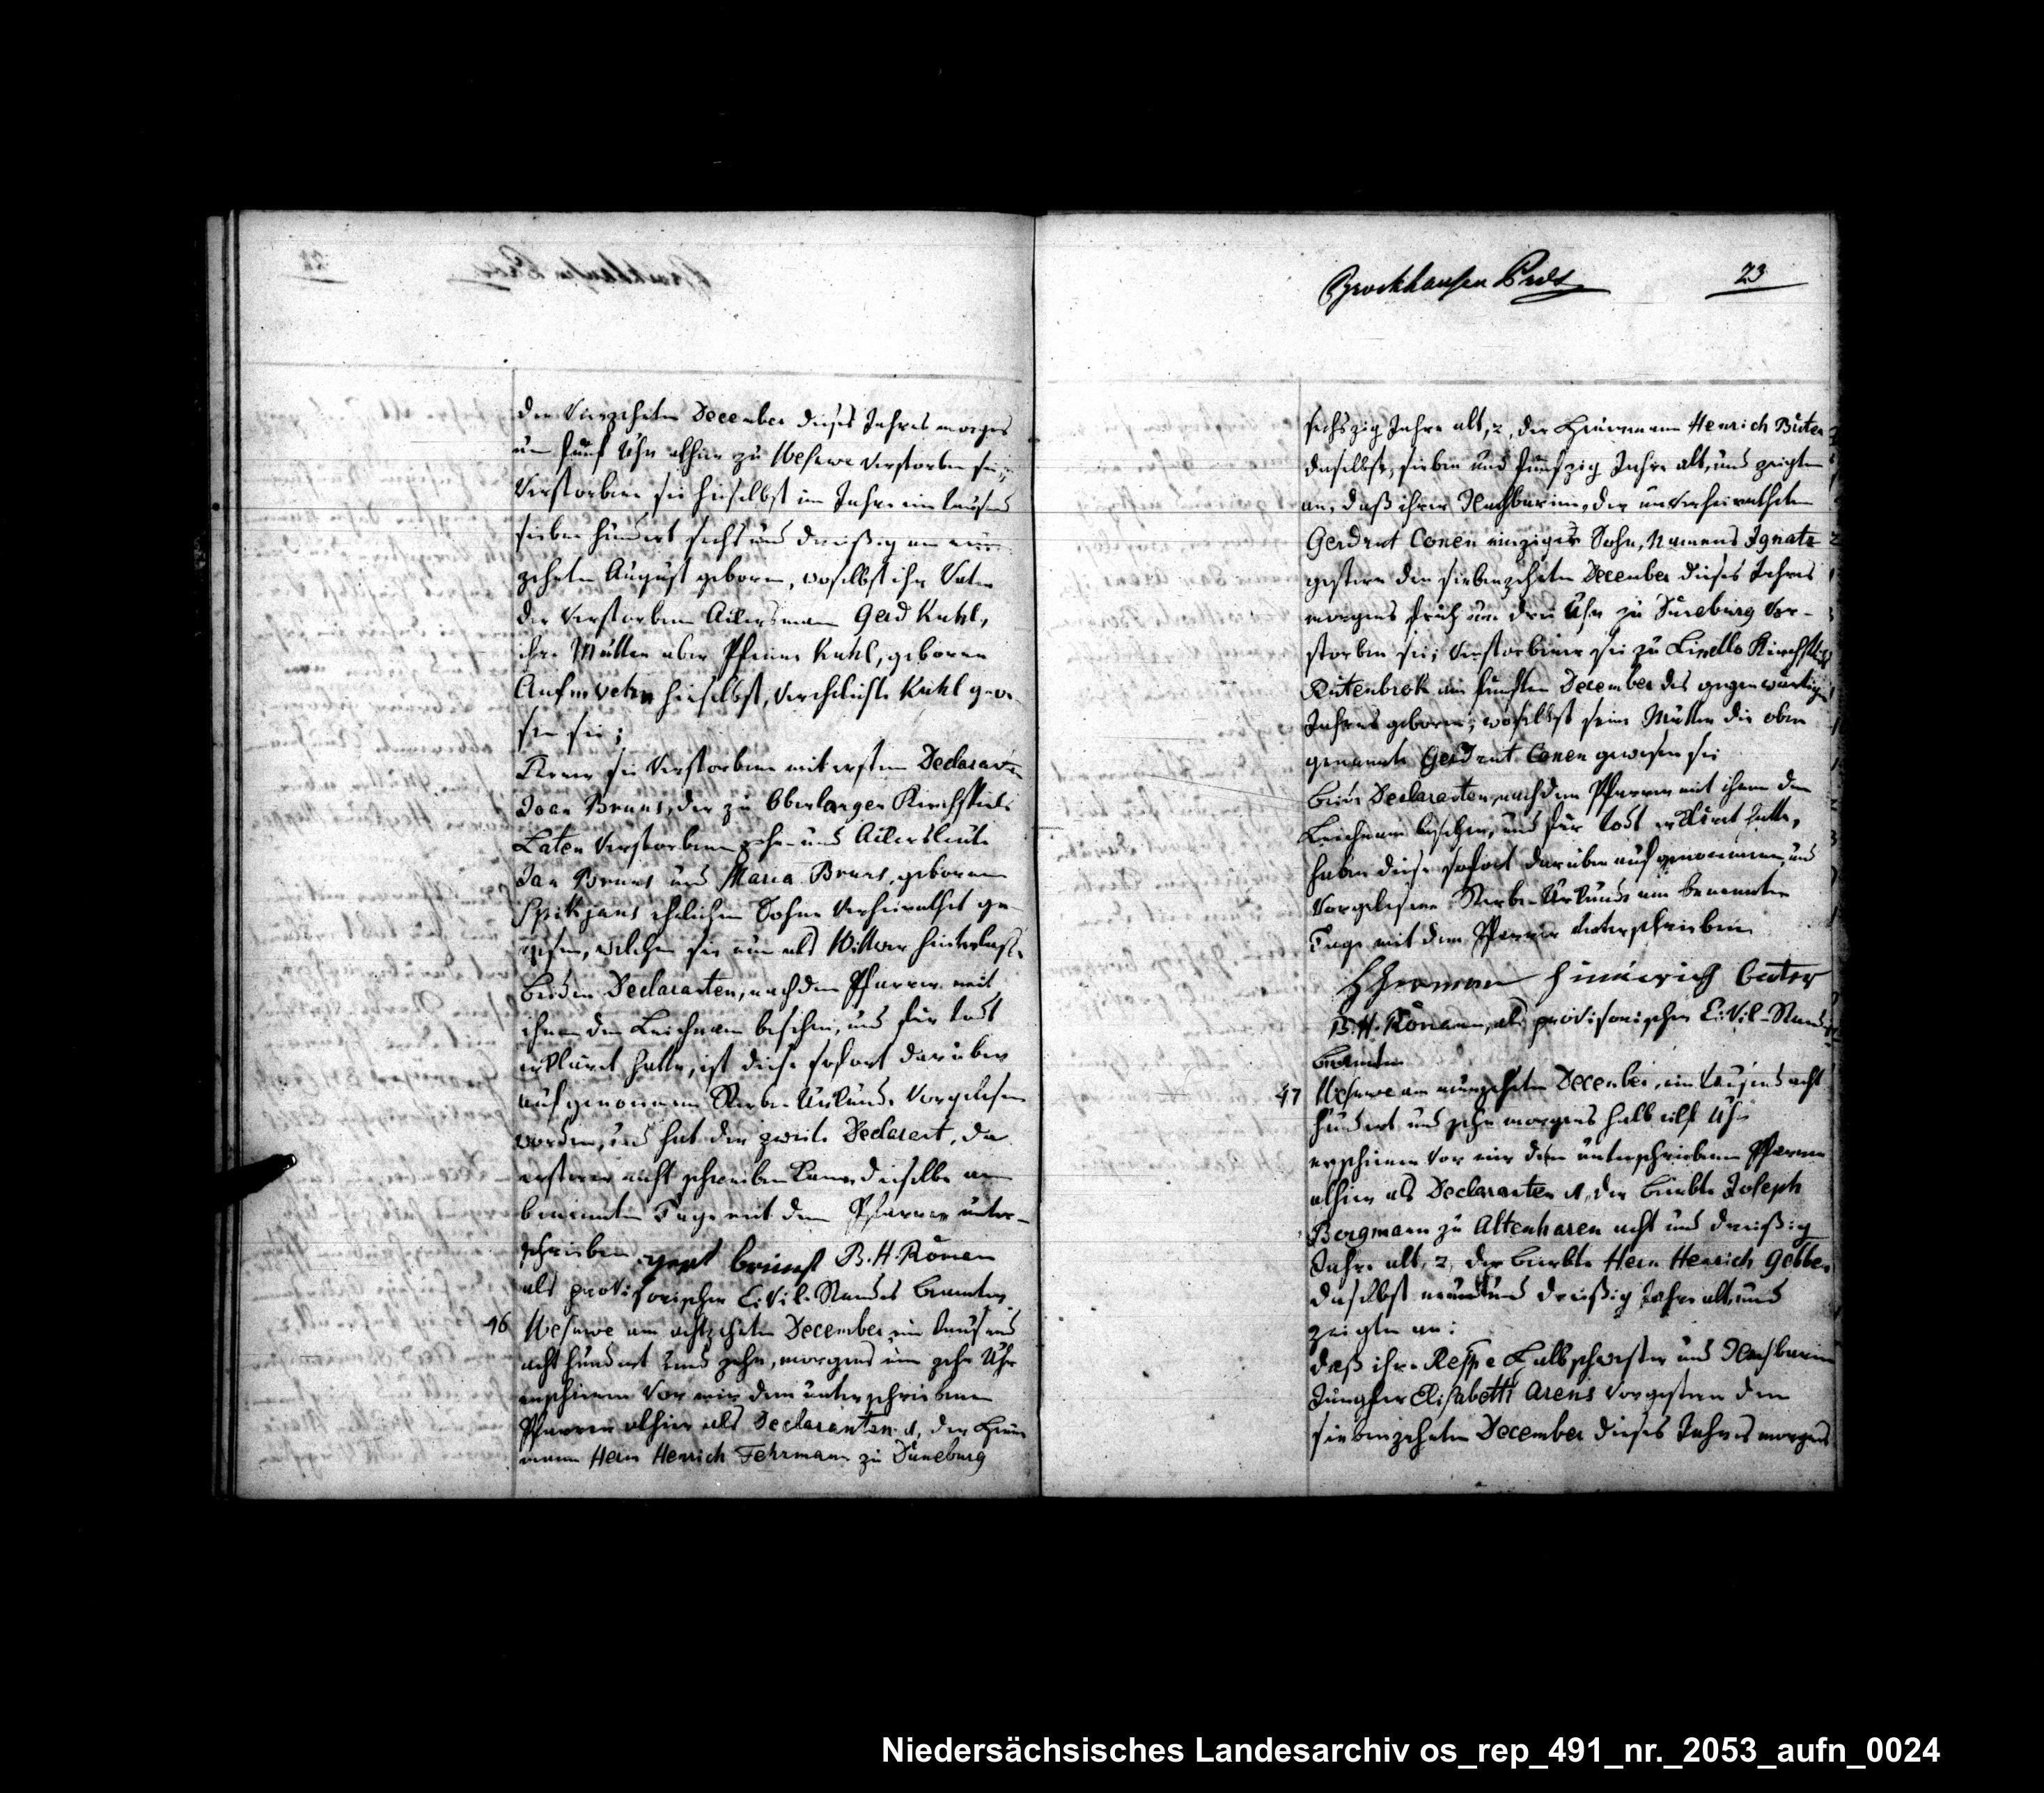 Brockhausen Prdt
23
den Vierzehnten December dieses Jahres morgens
um fünf Uhr alhier zu Wesuwe Verstorben sei;
Verstorbene sei hieselbst im Jahre ein tausend
sieben hundert sechs und dreißig am neun
zehnten August geboren, woselbst ihr Vater
der Verstorbene Ackersmann Gerd Kuhl,
ihre Mutter aber Kuhl, geborene
hieselbst, Verehelichte Kuhl gewe
sen sei;
Ferner sei Verstorbene mit ersten Declarant
Joan Bruns, der zu Oberlangen Kirchspiels
Laten Verstorbenen Ackersleute
Jan Bruns und Maria Bruns, geborene
Spikjans ehelichen Sohne Verheirathet ge
wesen, welchen sie nun als Wittwer hinterlasse
Beiden Declaranten, nachdem Pfarrer mit
ihnen den Leichnam besehen, und für todt
erklärt hatte, ist diese sofort darüber
aufgenommene Sterbe-Urkunde Vorgelesen
worden, und hat der zweite Declarant, da
ersterer nicht schreiben kann dieselbe am
benannten Tage mit dem Pfarrer unter-
schrieben. gert brunst B. H. Rönan
als provisorischer Civil-Standes Beamter
46 Wesuwe am achtzehnten December ein tausend
acht hundert und zehn, morgens um zehn Uhr
erschienen Vor mir dem unterschriebenen
Pfarrer alhier als Declaranten 1, der Heuer
mann Herm Henrich Fehrmann zu Düneburg
sechszig Jahre alt, 2, der Heuermann Henrich Büter
daselbst, sieben und funfzig Jahre alt, und zeigten
an, daß ihrer Nachbarinn, der unverheiratheten
Gerdrut Conen einziger Sohn, Namens Ignatz
gestern den siebenzehnten December dieses Jahres
morgens früh um drei Uhr zu Düneburg Ver-
storben sei; Verstorbener sei zu Kirchspiels
Rütenbrok am fünften December des gegenwärtigen
Jahres geboren, woselbst seine Mutter die oben
genannte Gerdrut Conen gewesen sei
Beide Declaranten, nachdem Pfarrer mit ihnen den
Leichnam besehen, und für todt erklärt hatte,
haben diese sofort darüber aufgenommene, und
Vorgelesene Sterbe-Urkunde am benannten
Tage mit dem Pfarrer unterschrieben
Hhermen hinderich buter
B. H. Rönan, als provisorischer Civil-Standes
Beamter
47 Wesuwe am neunzehnten December, ein tausend acht
hundert und zehn morgens halb eilf Uhr
erschienen Vor mir dem unterschriebenen Pfarrer
alhier als Declaranten 1, der Joseph
Bergmann zu Altenharen acht und dreißig
Jahre alt, 2, der Herm Henrich Gebben
daselbst neun und dreißig Jahre alt, und
zeigten an:
daß ihre Halbschwester und Nachbarinn
Jungfer Elisabeth Arens Vorgestern den
siebenzehnten December dieses Jahres morgens
Niedersächsisches Landesarchiv os_rep_491_nr._2053_aufn_0024